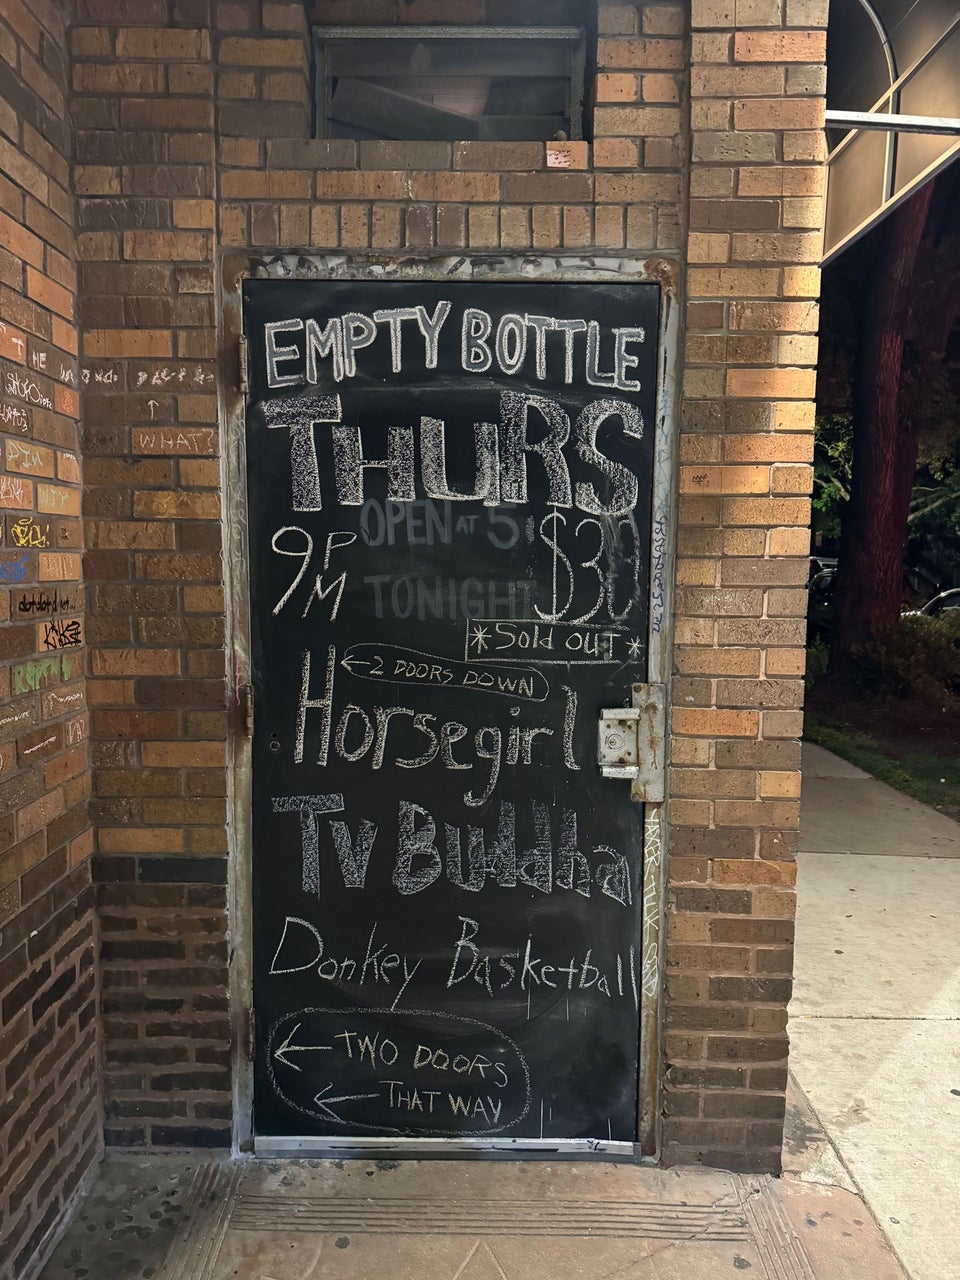 EMPTY BOTTLE
THURS
9PM
OPEN AT 5
$30
TONIGHT
*Sold out*
← 2 DOORS DOWN
Horsegirl
Tv Buddha
Donkey Basketball
← TWO DOORS
← THAT WAY
WHAT?